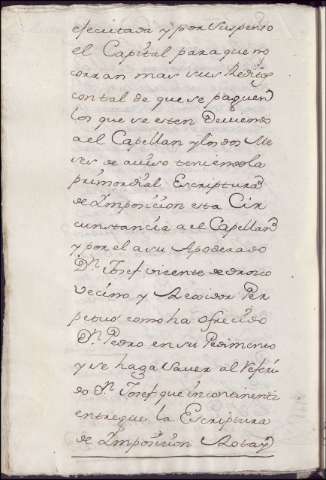 efecutada y por suspenso
el Capital para que no
corran mas sus Redi
con tal de que se paguen
los que se esten Deviendo
a el Capellan y los dos Me
ses de aviso teniendo la
primordial Escriptura
de Imposicion esta Cir
cunstancia a el Capellan
y por el a su Apoderado
Dn. Josef vicente de orosco
vecino y Rexidor Per
petuo como ha ofrecido
Dn. Pedro en su Pedimento
y se haga saver al referi
do Dn. Josef que incontinenti
entregue la Escriptura
de Imposicion